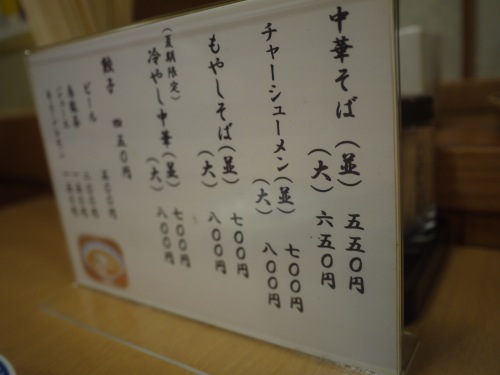 中華そば（並）五五〇円
（大）六五〇円
チャーシューメン（並）七〇〇円
（大）八〇〇円
もやしそば（並）七〇〇円
（大）八〇〇円
（夏期限定）
冷やし中華（並）七〇〇円
（大）八〇〇円
餃子 四五〇円
ビール 五〇〇円
烏龍茶 二〇〇円